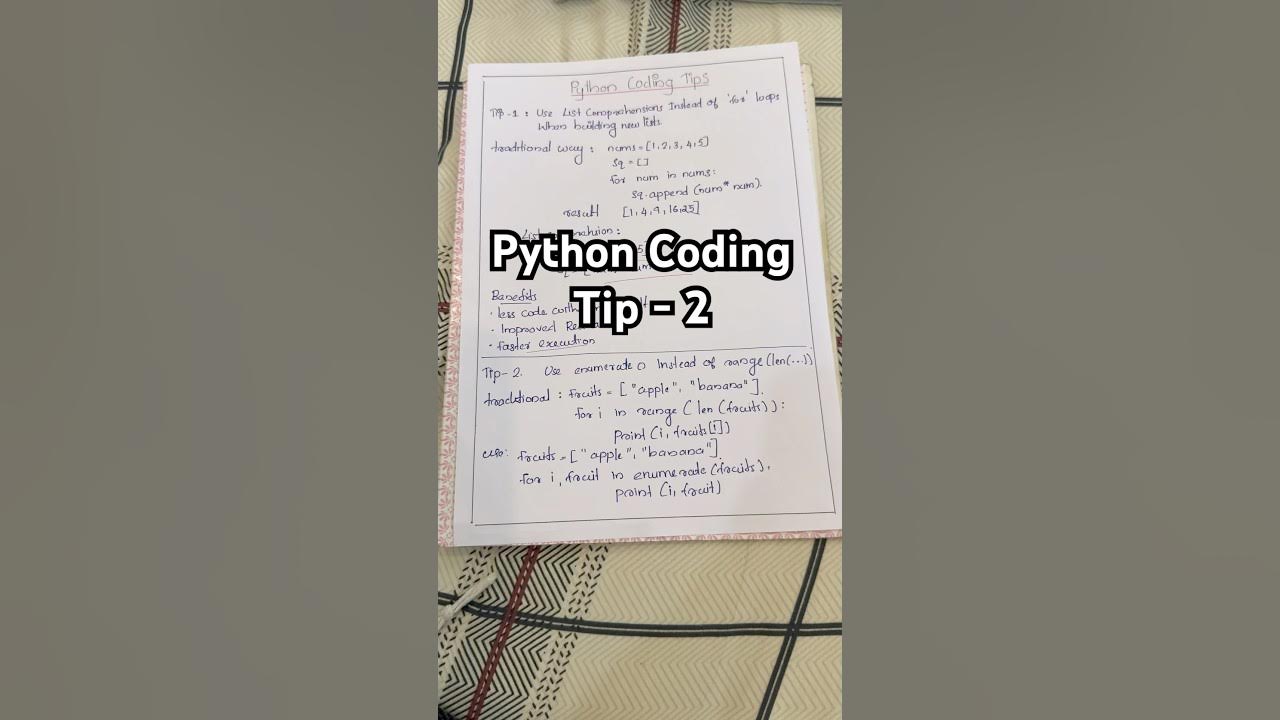 Python Coding Tips
Tip-1 : Use List Comprehensions Instead of 'for' loops
When building new lists.
traditional way : nums = [1,2,3,4,5]
sq = []
for num in nums:
sq.append (num * num).
result [1,4,9,16,25]
List :
Python Coding
Tip - 2
Benefits
• less code
• Improved
• faster execution
Tip-2. Use enumerate() Instead of range(len(...))
traditional : fruits = ["apple", "banana"].
for i in range (len (fruits)):
print (i, fruits[i])
fruits = ["apple", "banana"].
for i, fruit in enumerate (fruits),
print (i, fruit)